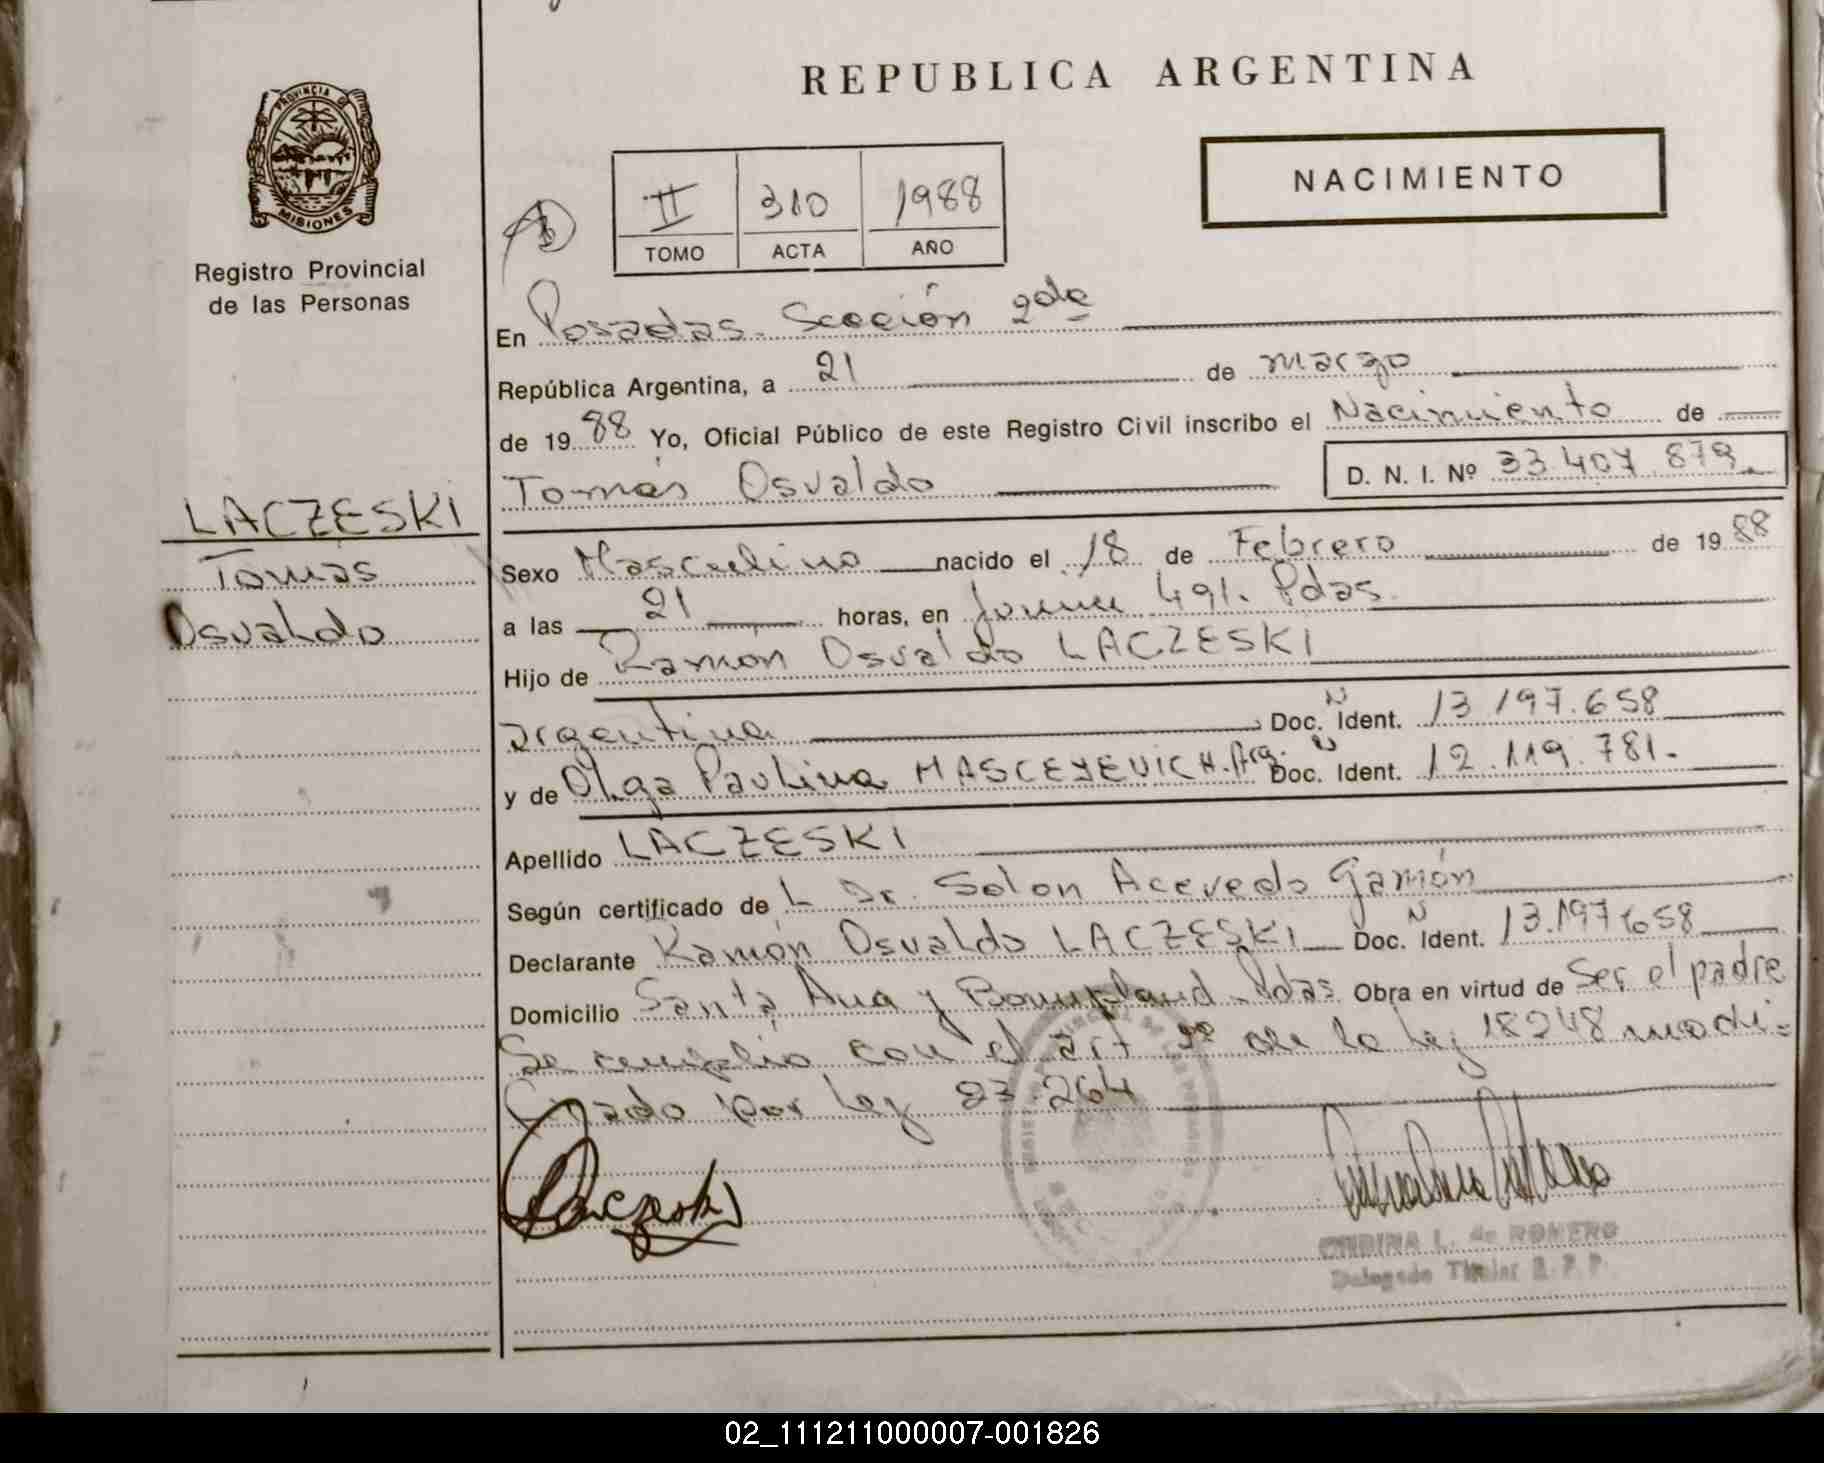 REPUBLICA ARGENTINA
PROVINCIA DE
MISIONES
Registro Provincial
de las Personas
II 310 1988
TOMO ACTA AÑO
NACIMIENTO
En Posadas. Sección 2da
República Argentina, a 21 de marzo
de 19 88 Yo, Oficial Público de este Registro Civil inscribo el Nacimiento de
Tomás Osvaldo D. N. I. Nº 33.407.879
LACZESKI
Tomás
Osvaldo
Sexo Masculino nacido el 18 de Febrero de 19 88
a las 21 horas, en Junin 491. Pdas.
Hijo de Ramón Osvaldo LACZESKI
argentina Doc. N Ident. 13.197.658
y de Olga Paulina MASCEYEVICH. Arg. Doc. N Ident. 12.119.781.
Apellido LACZESKI
Según certificado de L Dr. Solon Acevedo Gamón
Declarante Ramón Osvaldo LACZESKI Doc. N Ident. 13.197658
Domicilio Santa Ana y Bompland. Pdas Obra en virtud de Ser el padre
Se cumplio con el art 9º de la ley 18248 modi=
ficado por ley 23.264
L. de ROMERO
Delegado Titular R. P. P.
02_111211000007-001826